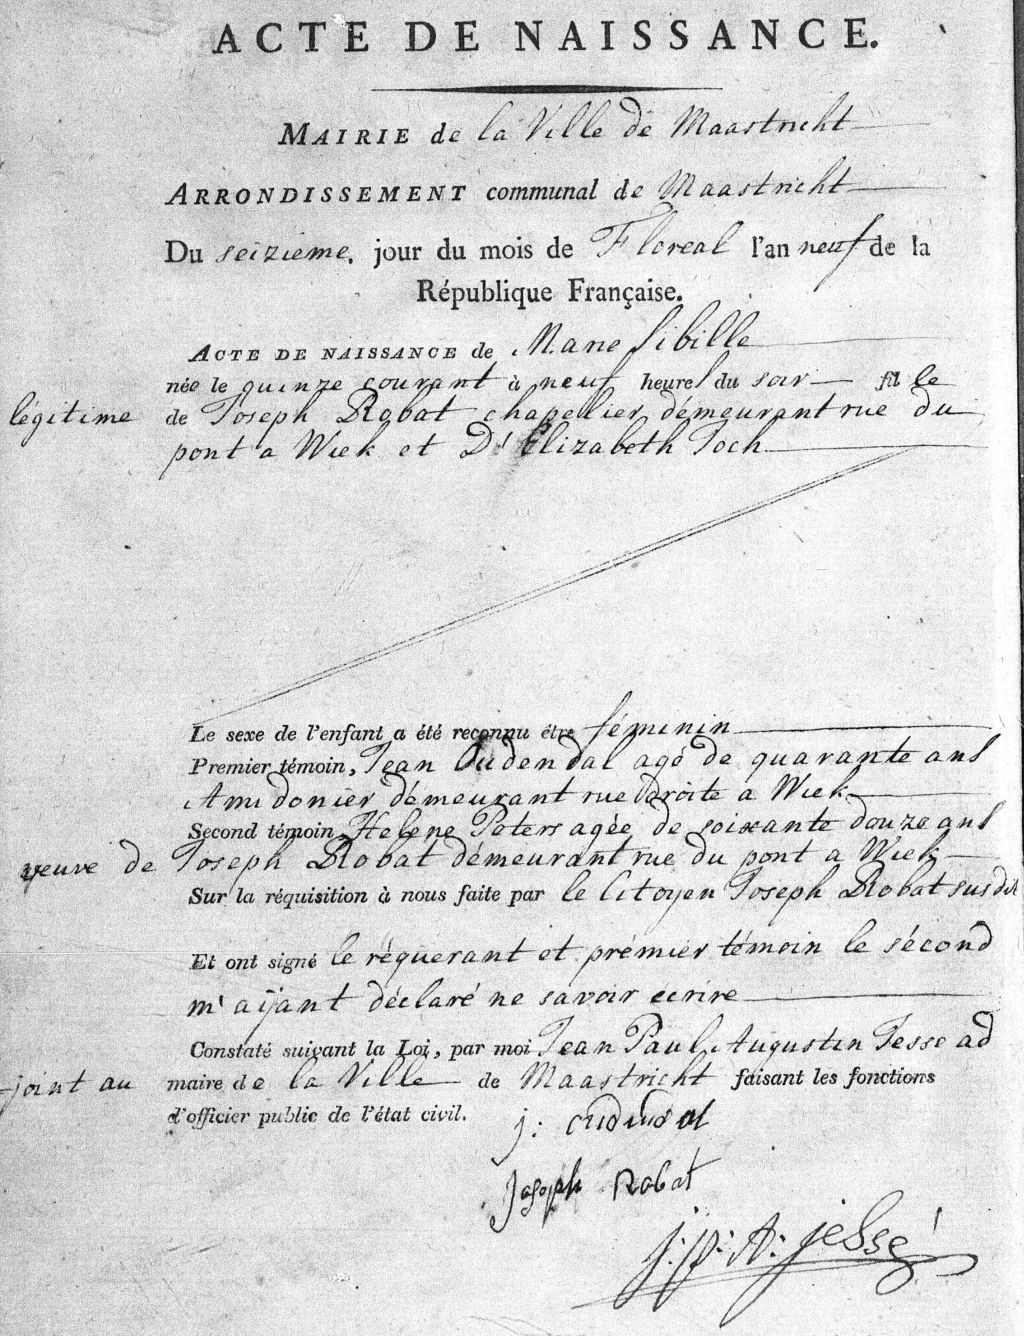 ACTE DE NAISSANCE.
MAIRIE de la Ville de Maastricht
ARRONDISSEMENT communal de Maastricht
Du seizieme jour du mois de Floreal l'an neuf de la
République Française.
ACTE DE NAISSANCE de Marie Sibille
née le quinze courant à neuf heures du soir fille
légitime de Joseph Robat chapellier démeurant rue du
pont a Wiek et De Elizabeth Joch
Le sexe de l'enfant a été reconnu être féminin
Premier témoin, Jean Oudendal agé de quarante ans
Amidonier démeurant rue droite a Wiek
Second témoin Helene Peters agée de soixante douze ans
veuve de Joseph Robat démeurant rue du pont a Wiek
Sur la réquisition à nous faite par le Citoyen Joseph Robat susdit
Et ont signé le réquerant et prémier témoin le sécond
m'aijant déclaré ne savoir ecrire
Constaté suivant la Loi, par moi Jean Paul Augustin Jesse ad
joint au maire de la Ville de Maastricht faisant les fonctions
d'officier public de l'état civil.
j: oudendal
Joseph Robat
j: p: A: jessé